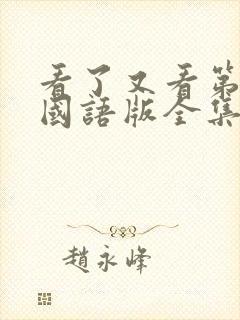 看了又看第
國語版全集
趙永峰